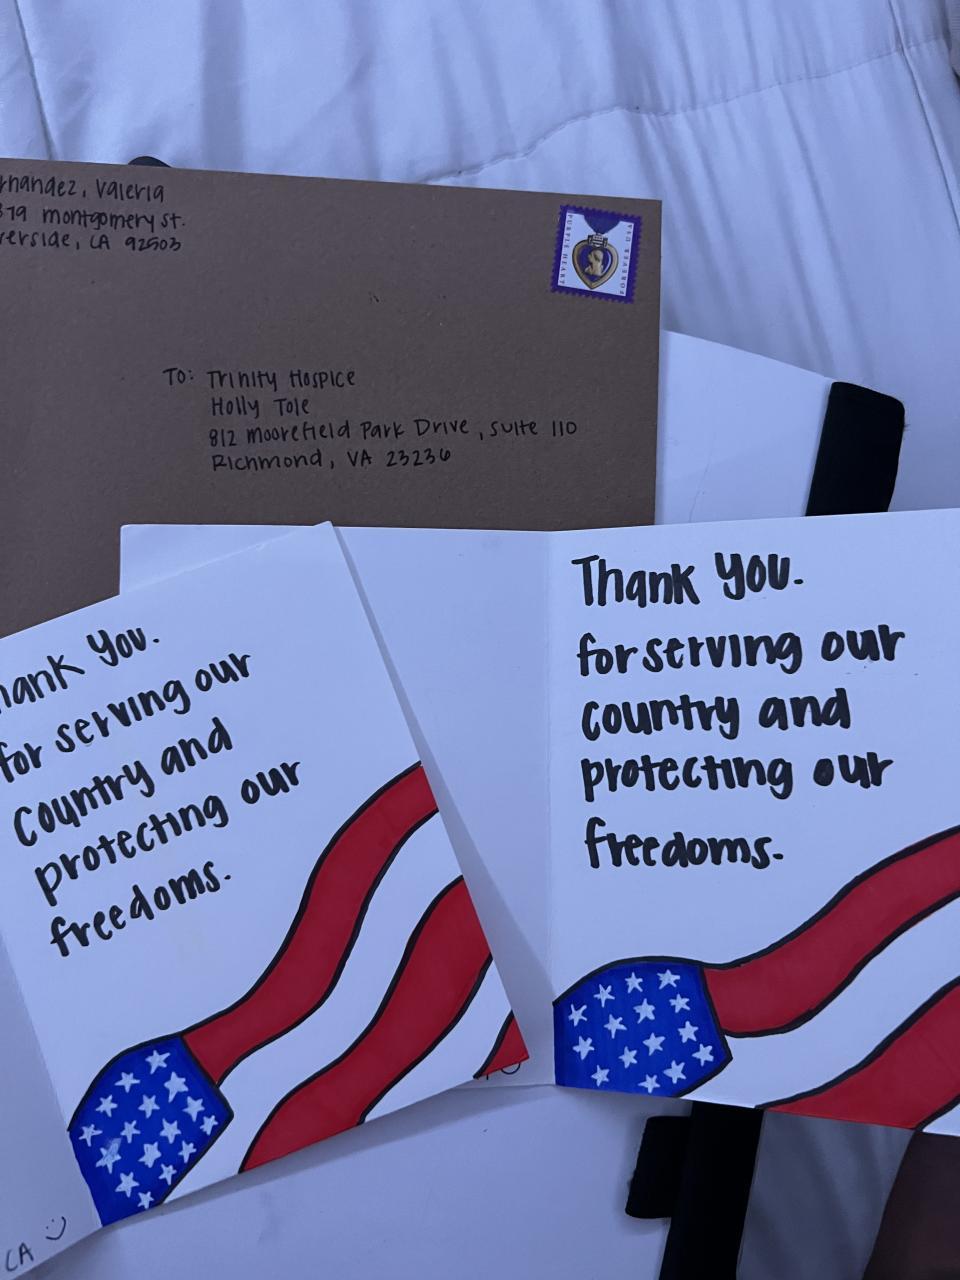 Valeria
montgomery st.
CA 92503
PURPLE HEART
FOREVER USA
TO: Trinity Hospice
Holly Tole
812 Moorefield Park Drive, suite 110
Richmond, VA 23236
Thank you.
for serving our
country and
protecting our
freedoms.
you.
for serving our
country and
protecting our
freedoms.
CA